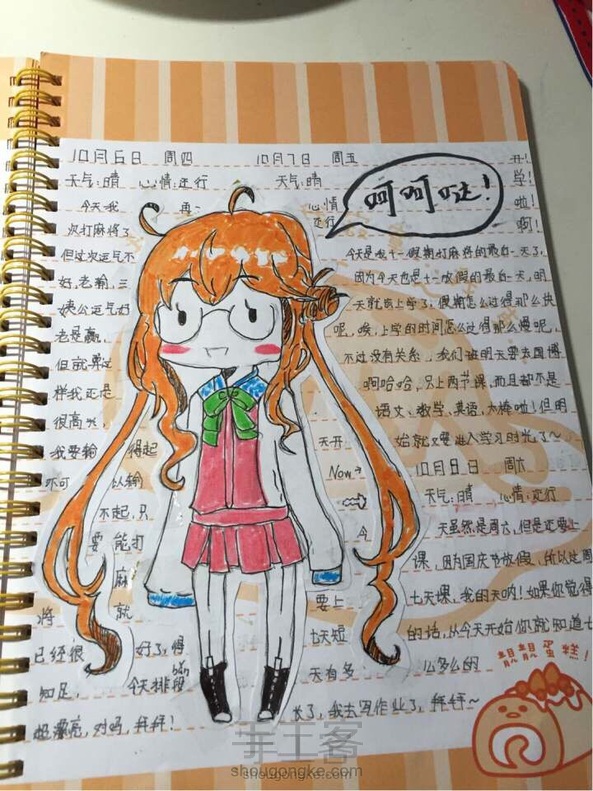 10月6日 周四
天气:晴 心情:还行
今天我 再一
次打麻将了
但这次运气不
好,老输,三
姨公运气好
老是赢,
但就算这
样我还是
很高兴,
我要输 得起
亦可 以输
不起,只
要 能打
麻
将 就
已经很 好了,得
知足, 今天排版
超漂亮,对吗,拜拜!
10月7日 周五
天气:晴 心情
还行
呵呵哒!
啦!
啊!
今天是我十一假期打麻将的最后一天了,
因为今天也是十一放假的最后一天,明
天就要上学了,假期怎么过得那么快
呢,唉,上学的时间怎么过得那么慢呢,
不过没有关系,我们班明天要去国博
啊哈哈,只上两节课,而且都不是
语文、数学、英语,太棒啦!但明
天开 始就又要进入学习时光了~
Now→
10月8日 周六
天气:晴 心情:还行
今 天虽然是周六,但是还要上
课,因为国庆节放假,所以这周
要上 七天课,我的天呐!如果你觉得
七天短 的话,从今天开始你就知道七
天有多 么多么的
长了,我去写作业了,拜拜~
蛋糕!
手工客
shougongke.com
shougongke.com